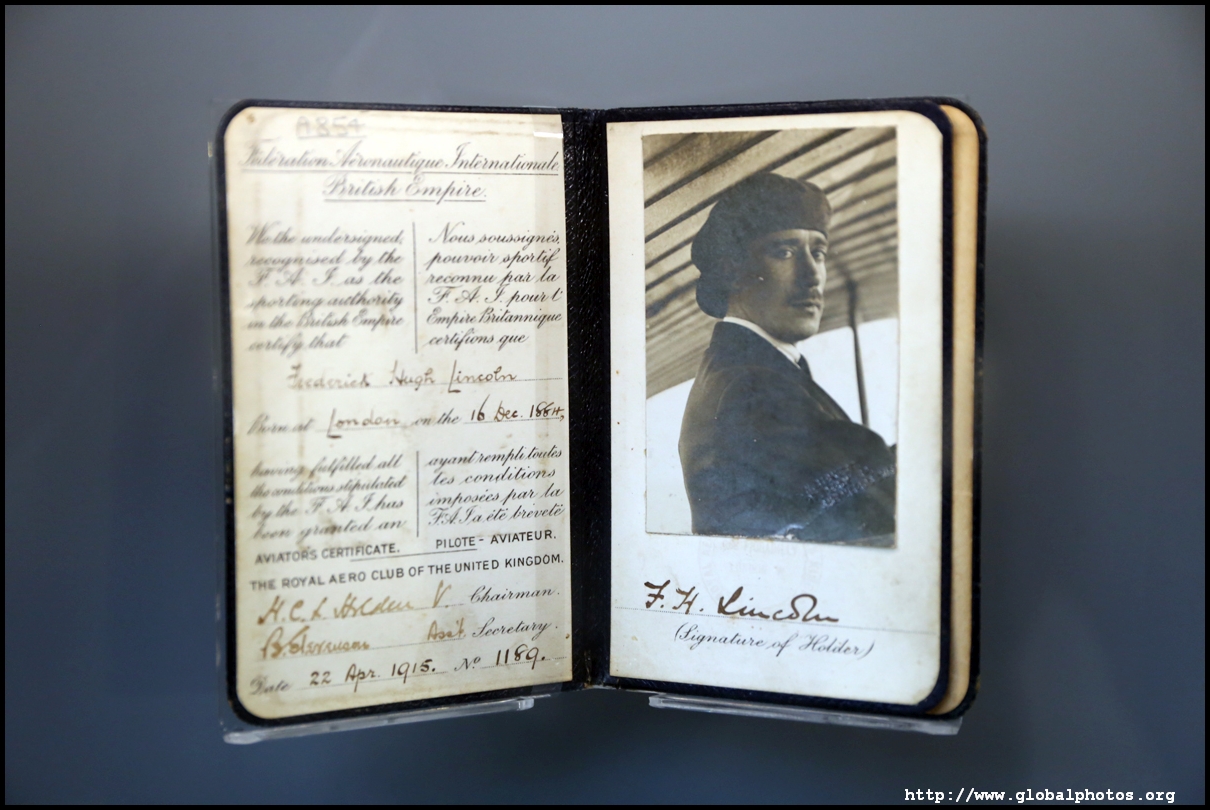 A854
Fédération Aéronautique Internationale
British Empire.
We the undersigned,
recognised by the
F. A. I. as the
sporting authority
in the British Empire
certify that
Nous soussignés,
pouvoir sportif
reconnu par la
F. A. I. pour l'
Empire Britannique
certifions que
Frederick Hugh Lincoln
Born at London on the 16 Dec. 1884,
having fulfilled all
the conditions stipulated
by the F. A. I. has
been granted an
ayant rempli toutes
les conditions
imposées par la
F.A.I. a été breveté
AVIATOR'S CERTIFICATE. PILOTE - AVIATEUR.
THE ROYAL AERO CLUB OF THE UNITED KINGDOM.
H.C.L. Holden V. Chairman.
B. Stevenson Asst. Secretary.
Date 22 Apr. 1915. No 1189.
F. H. Lincoln
(Signature of Holder)
http://www.globalphotos.org